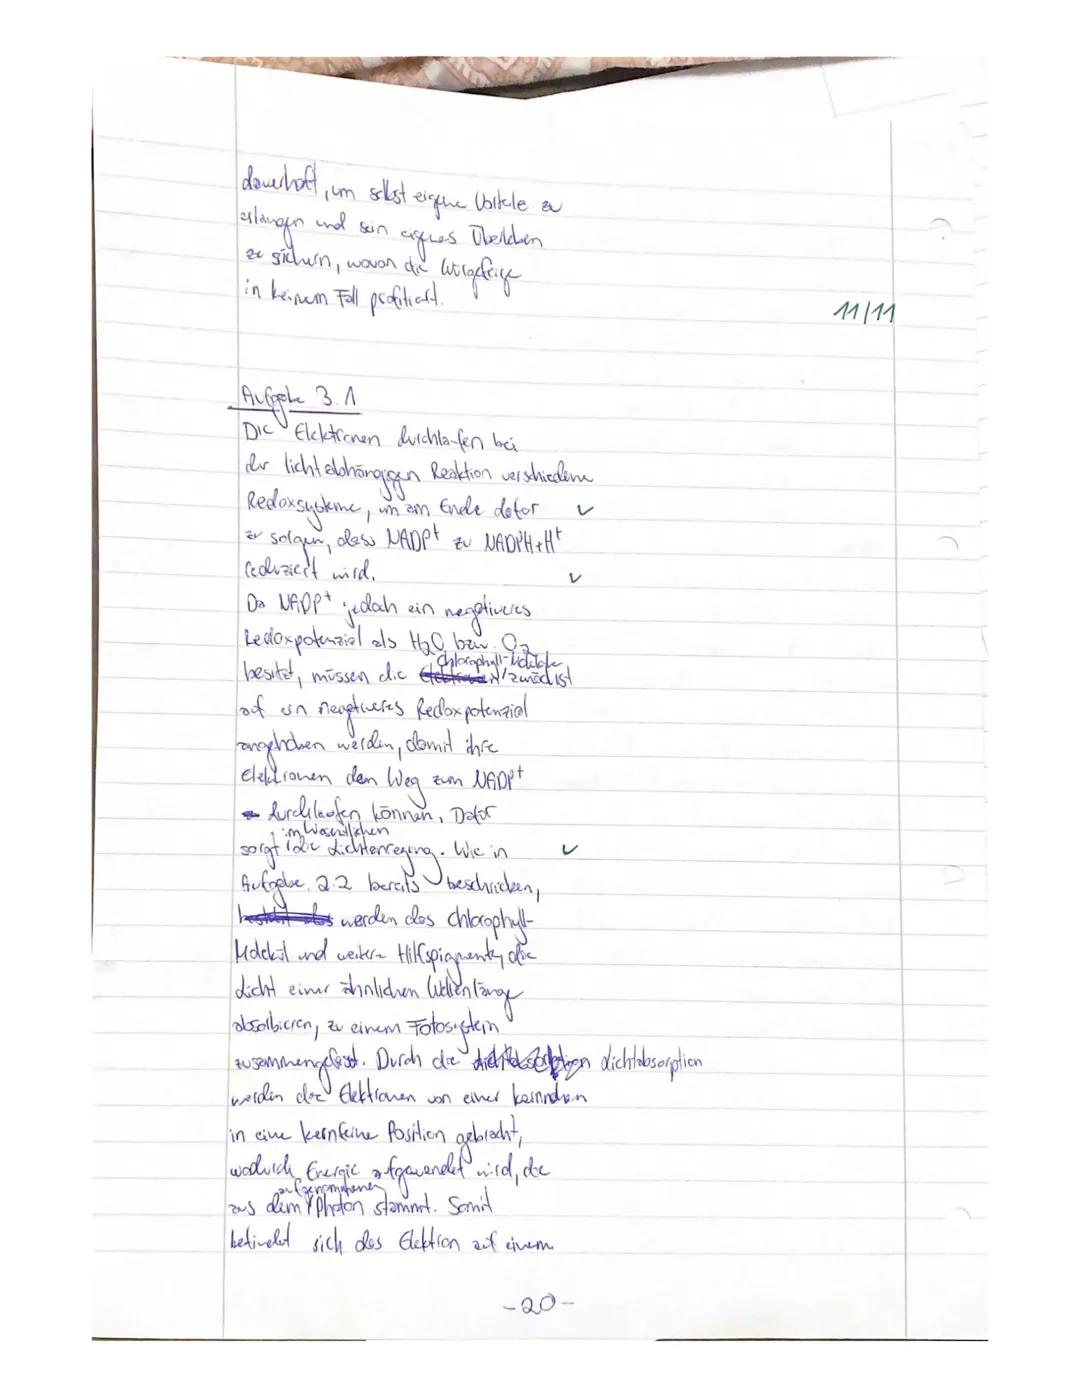 dauerhaft, um selbst eigene Vorteile zu
erlangen und sein eigenes Überleben
zu sichern, wovon die Würgefeige
in keinem Fall profitiert.
11/11
Aufgabe 3.1
Die Elektronen durchlaufen bei
der lichtabhängigen Reaktion verschiedene
Redoxsysteme, um am Ende dafür ✓
zu sorgen, dass NADP+ zu NADPH+H+
reduziert wird. ✓
Da NADP+ jedoch ein negativeres
Redoxpotenzial als H2O bzw. O2
besitzt, müssen die Chlorophyll-Moleküle zunächst
auf ein negativeres Redoxpotenzial
angehoben werden, damit ihre
Elektronen den Weg zum NADP+
durchlaufen können. Dafür
sorgt im Wesentlichen die Lichtenregung. Wie in ✓
Aufgabe 2.2 bereits beschrieben,
werden das Chlorophyll-
Molekül und weitere Hilfspigmente, die
Licht einer ähnlichen Wellenlänge
absorbieren, zu einem Fotosystem
zusammengefasst. Durch die Lichtabsorption
werden die Elektronen von einer kernnahen
in eine kernferne Position gebracht,
wodurch Energie aufgewendet wird, die
aus dem aufgenommenen Photon stammt. Somit
befindet sich das Elektron auf einem
-20-